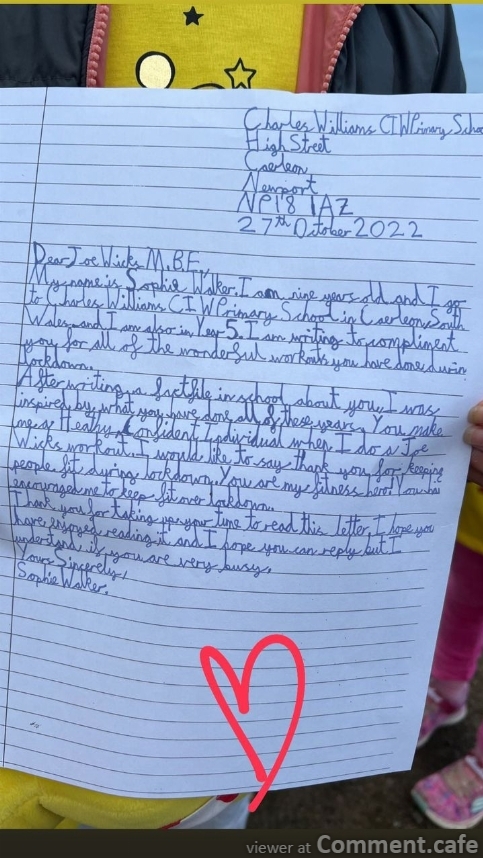 Charles Williams CIW Primary Scho
High Street
Caerleon
Newport
NP18 1AZ
27th October 2022
Dear Joe Wicks M.B.E,
My name is Sophie Walker. I am nine years old and I go
to Charles Williams CIW Primary School in Caerleon, South
Wales and I am also in Year 5. I am writing to compliment
you for all of the wonderful workouts you have done durin
lockdown.
After writing a factfile in school about you, I was
inspired by what you have done all of these years. You make
me a Healthy, Confident Individual when I do a Joe
Wicks workout. I would like to say thank you for keeping
people fit during lockdown. You are my fitness hero! You
encouraged me to keep fit over lockdown.
Thank you for taking up your time to read this letter. I hope you
have enjoyed reading it and I hope you can reply but I
understand if you are very busy.
Yours Sincerely,
Sophie Walker.
viewer at Comment.cafe